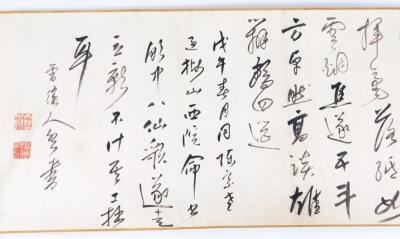 揮毫落紙如
雲烟焦遂五斗
方卓然高談雄
辯驚四筵
戊午春月同
山西院命書
飲中八仙歌遂
不計其工拙
耳
人書